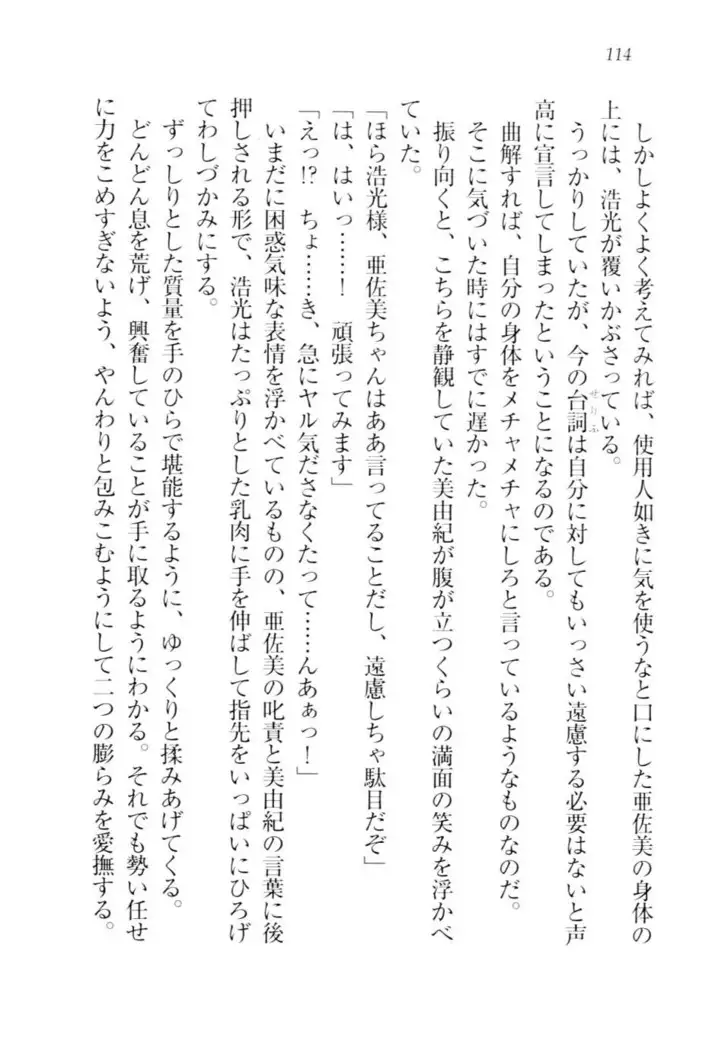 114
しかしよくよく考えてみれば、使用人如きに気を使うなと口にした亜佐美の身体の
上には、浩光が覆いかぶさっている。
うっかりしていたが、今の台詞は自分に対してもいっさい遠慮する必要はないと声
せりふ
高に宣言してしまったということになるのである。
曲解すれば、自分の身体をメチャメチャにしろと言っているようなものなのだ。
そこに気づいた時にはすでに遅かった。
振り向くと、こちらを静観していた美由紀が腹が立つくらいの満面の笑みを浮かべ
ていた。
「ほら浩光様、亜佐美ちゃんはああ言ってることだし、遠慮しちゃ駄目だぞ」
「は、はいっ……！　頑張ってみます」
「えっ!?　ちょ……き、急にヤル気ださなくたって……んあぁっ！」
いまだに困惑気味な表情を浮かべているものの、亜佐美の叱責と美由紀の言葉に後
押しされる形で、浩光はたっぷりとした乳肉に手を伸ばして指先をいっぱいにひろげ
てわしづかみにする。
ずっしりとした質量を手のひらで堪能するように、ゆっくりと揉みあげてくる。
どんどん息を荒げ、興奮していることが手に取るようにわかる。それでも勢い任せ
に力をこめすぎないよう、やんわりと包みこむようにして二つの膨らみを愛撫する。